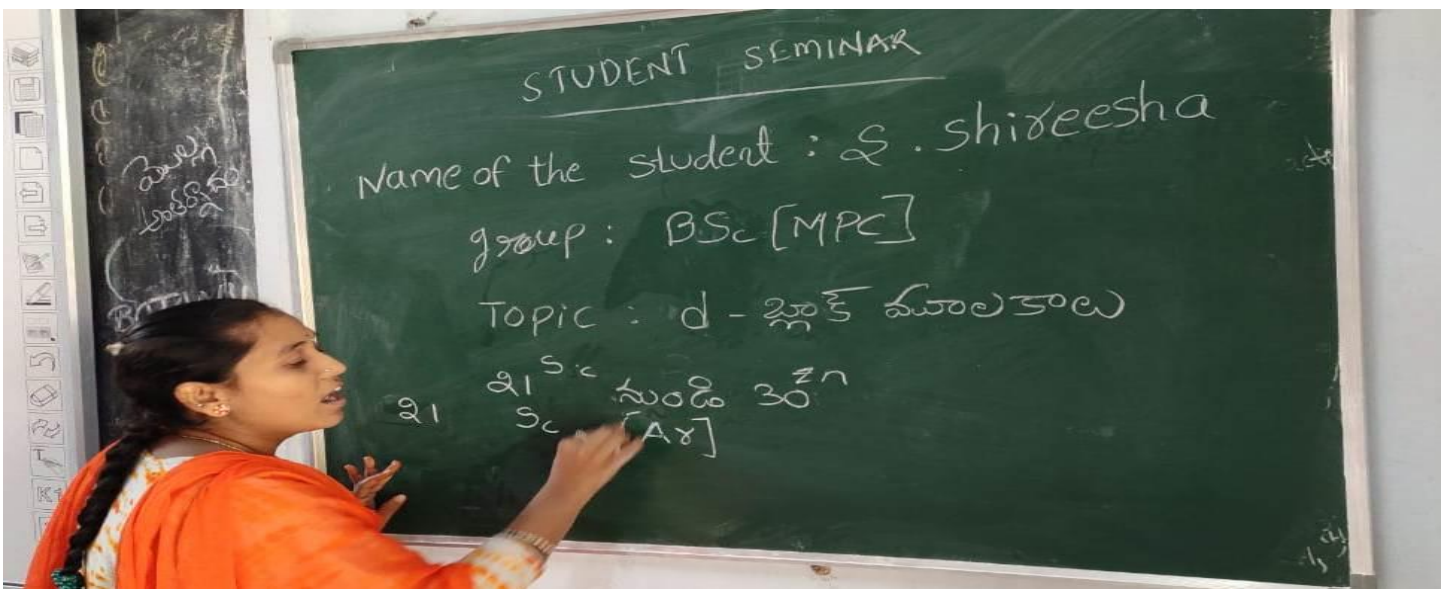 STUDENT SEMINAR
Name of the student : S. Shireesha
group : BSc [MPC]
Topic : d - బ్లాక్ మూలకాలు
21 Sc నుండి 30 Zn
21 Sc [Ar]